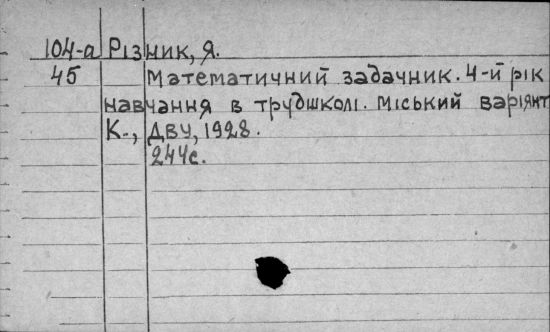 104-а Різник, Я.
45 Математичний задачник. 4-й рік
навчання в трудшколі. Міський варіянт
К., ДВУ, 1928.
244с.